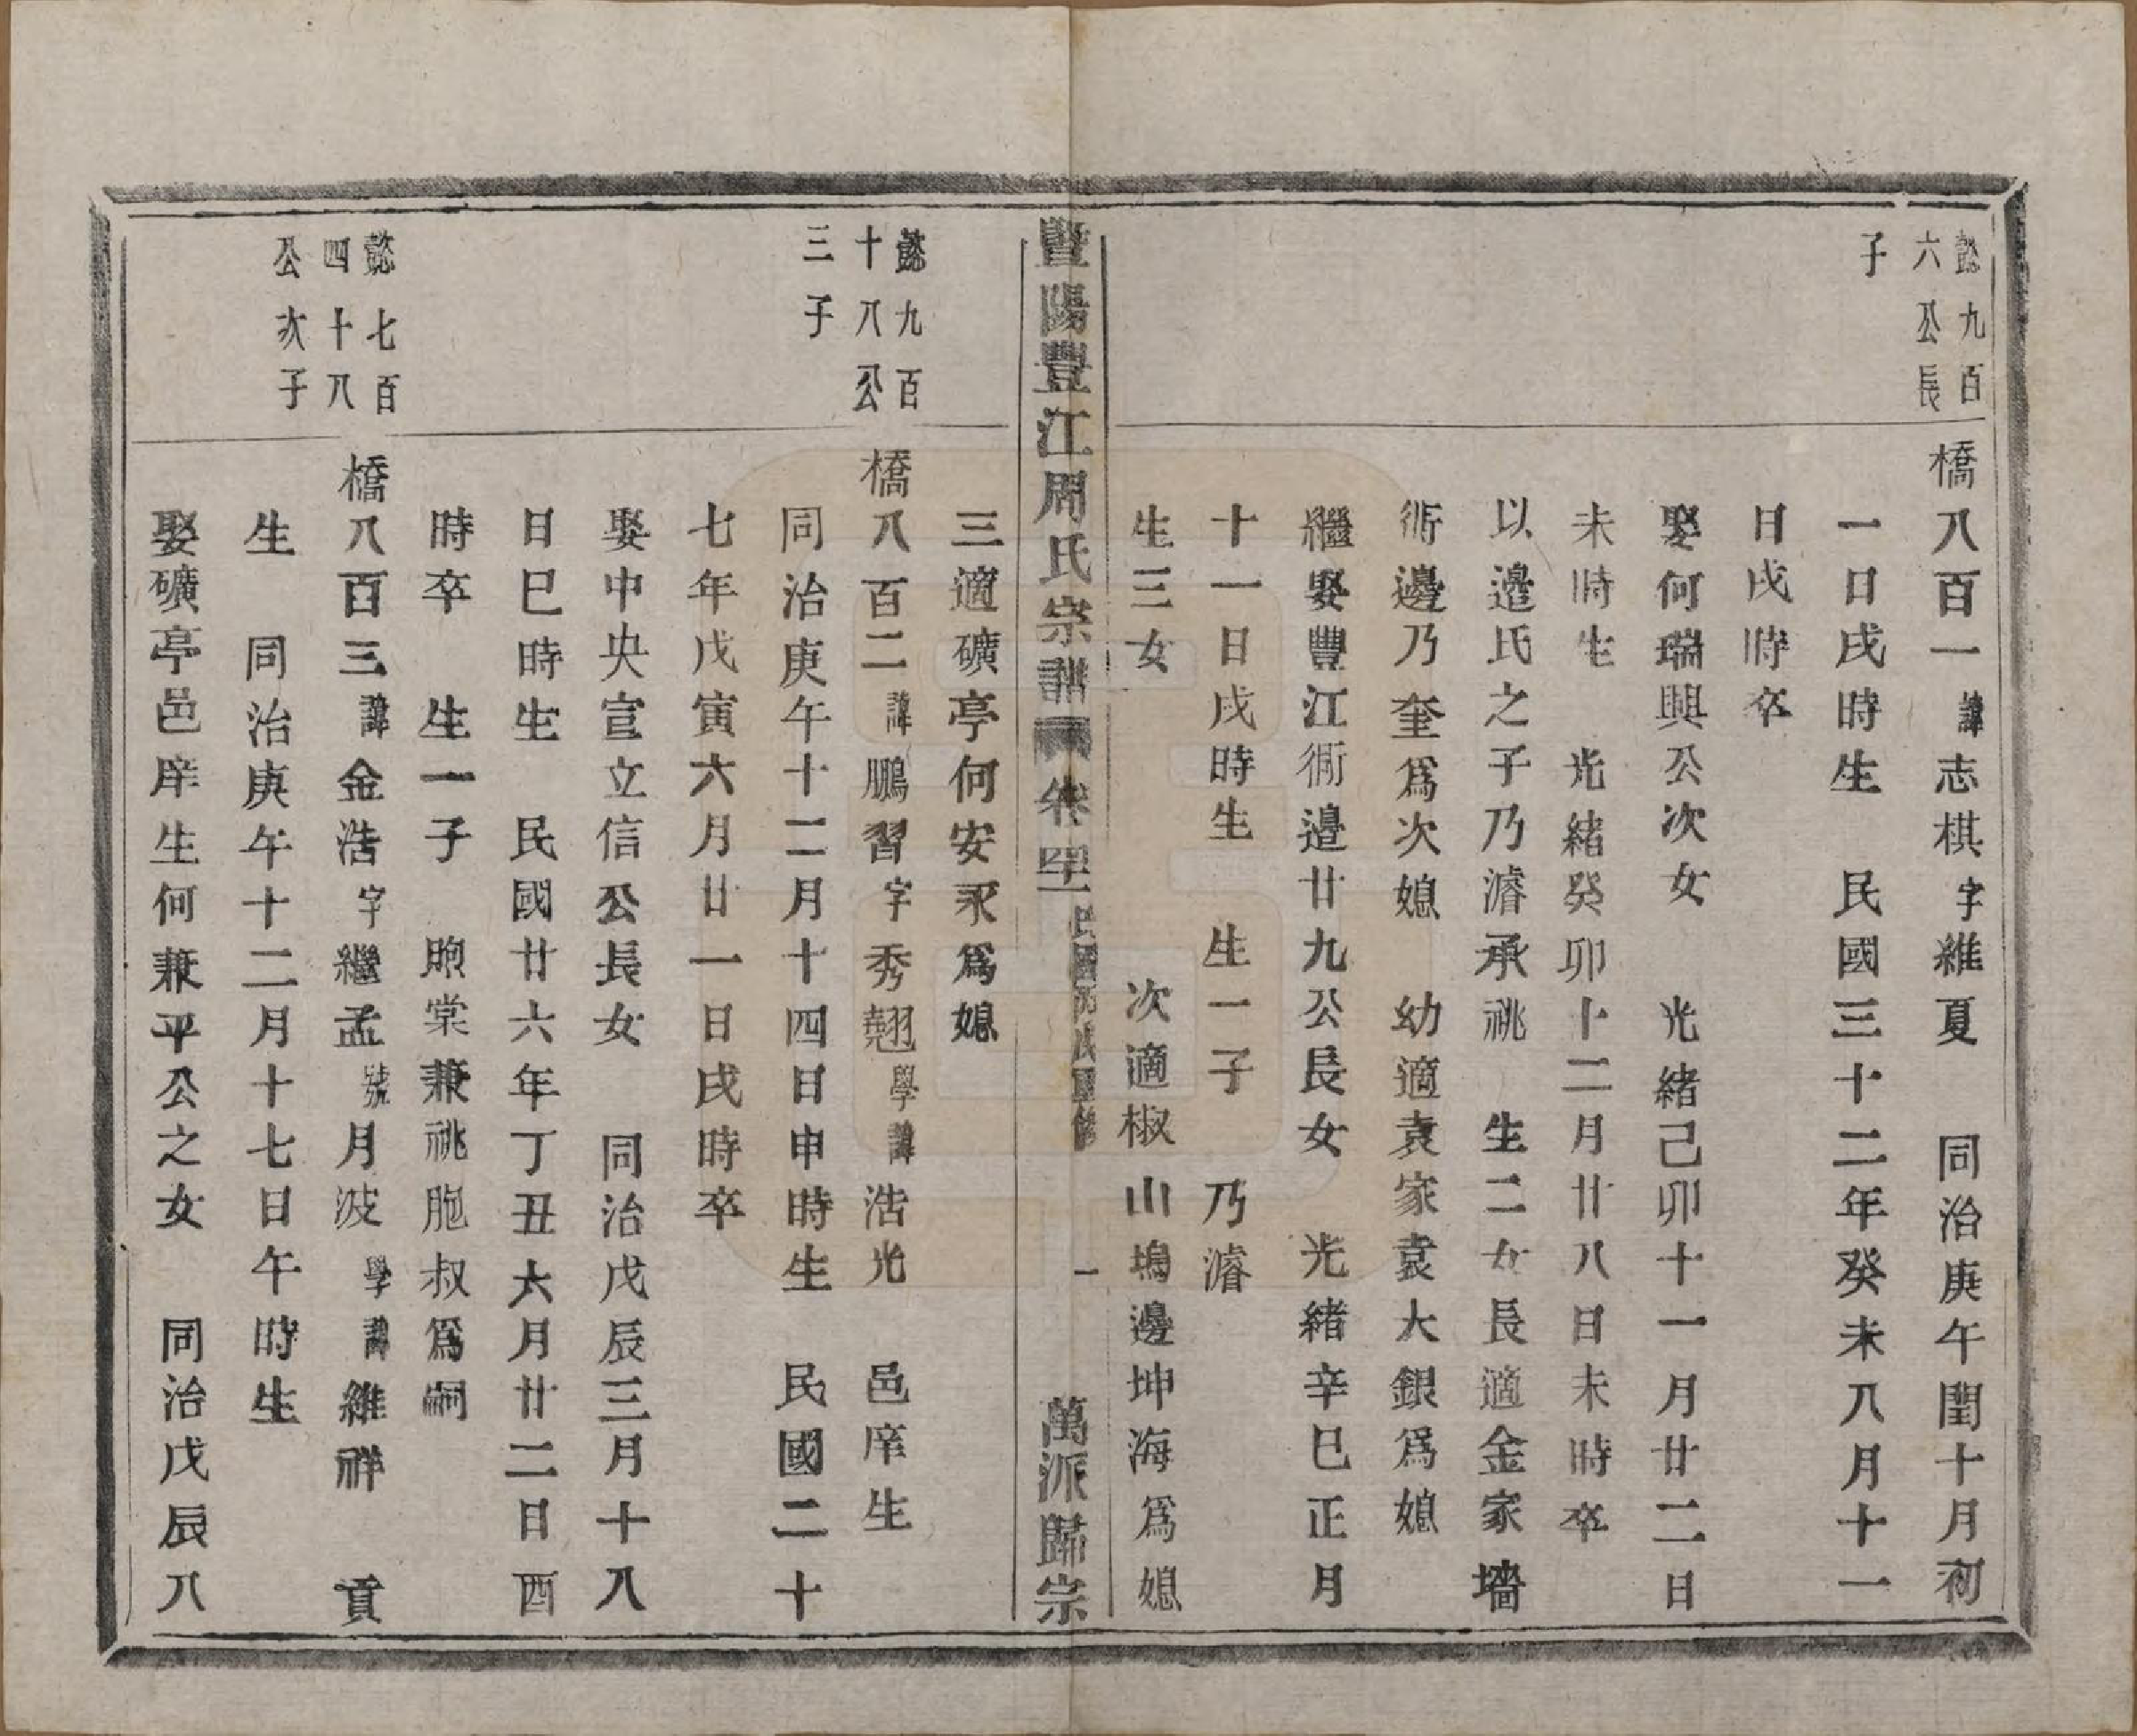 懿九百
六公長
子
橋八百一諱志棋字維夏　同治庚午閏十月初
一日戌時生　民國三十二年癸未八月十一
日戌時卒
娶何瑞興公次女　光緒己卯十一月廿二日
未時生　光緒癸卯十二月廿八日未時卒
以邉氏之子乃濬承祧　生二女長適金家墻
衖邊乃奎爲次媳　幼適袁家袁大銀爲媳
繼娶豐江衕邉廿九公長女　光緒辛巳正月
十一日戌時生　生一子　乃濬
生三女　次適椒山塢邊坤海爲媳
暨陽豐江周氏宗譜　卷　一　萬派歸宗
三適礦亭何安永爲媳
懿九百
十八公
三子
橋八百二諱鵬習字秀翹學諱浩光　邑庠生
同治庚午十二月十四日申時生　民國二十
七年戊寅六月廿一日戌時卒
娶中央宣立信公長女　同治戊辰三月十八
日巳時生　民國廿六年丁丑六月廿二日酉
時卒　生一子　煦棠兼祧胞叔爲嗣
懿七百
四十八
公次子
橋八百三諱金浩字繼孟號月波學諱維祥　貢
生　同治庚午十二月十七日午時生
娶礦亭邑庠生何兼平公之女　同治戊辰八